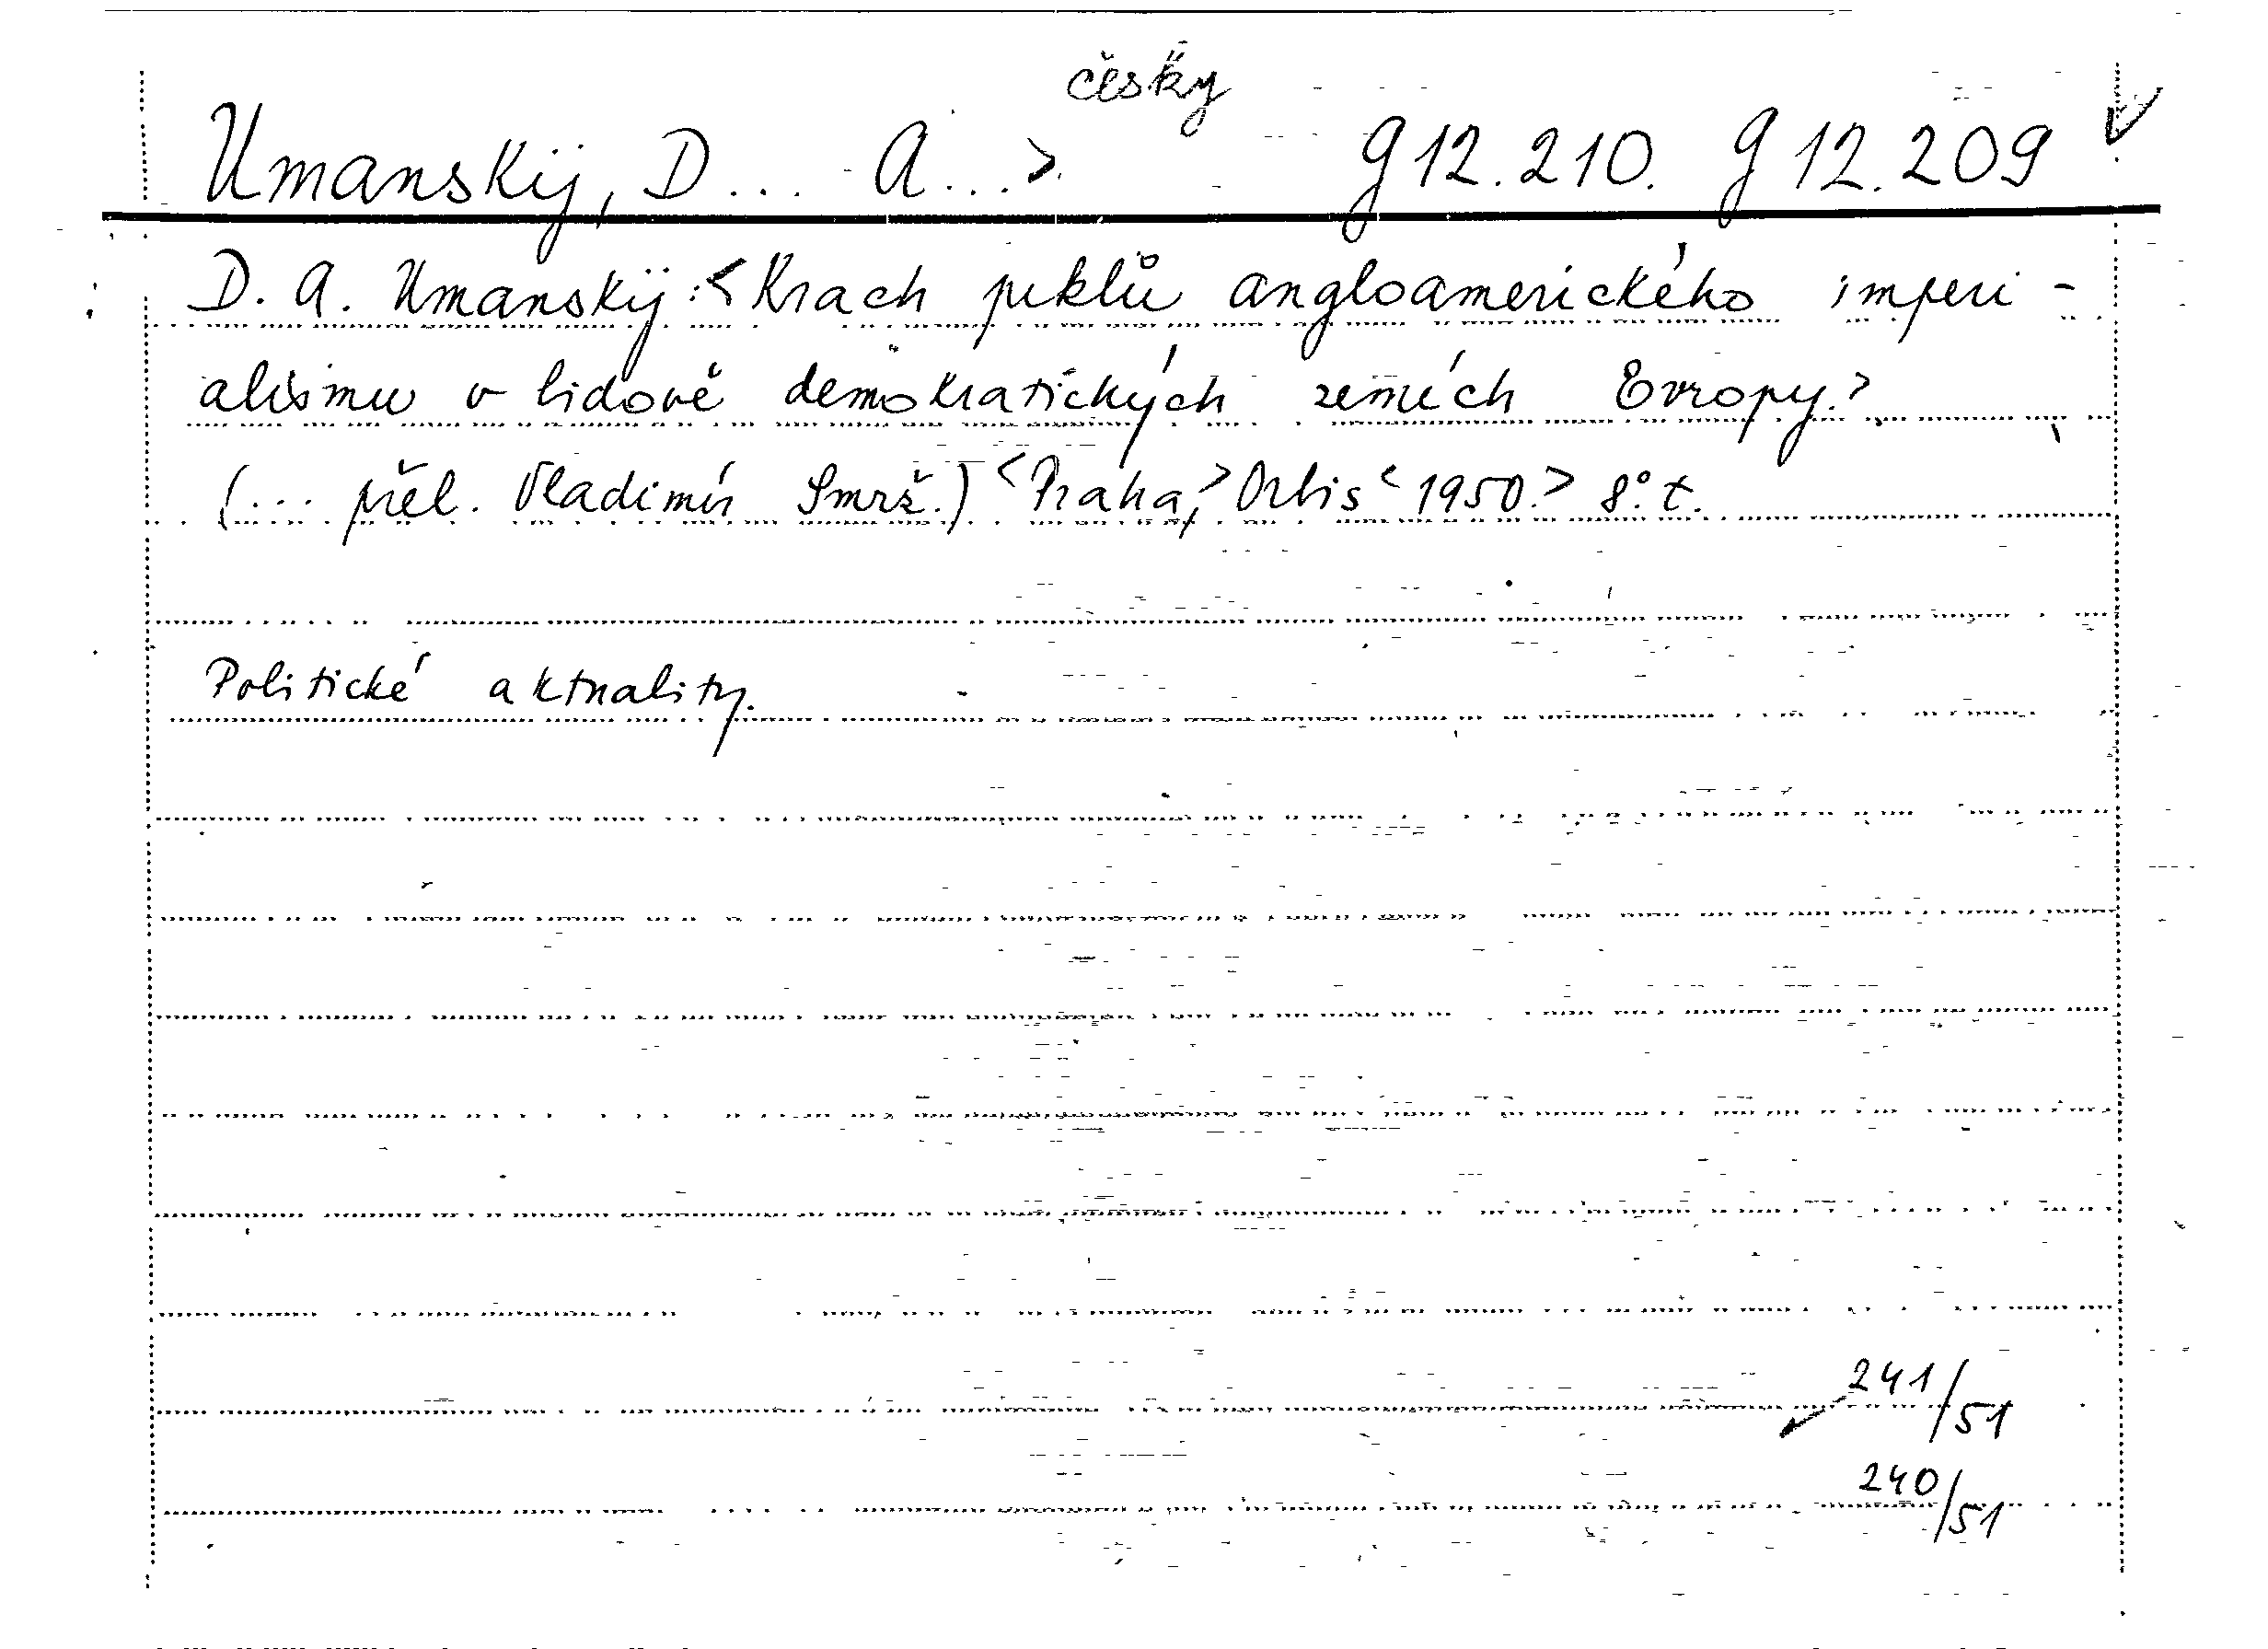 česky
Umanskij, D... A...> g 12.210. g 12.209
D. A. Umanskij: <Krach piklů angloamerického imperi-
alismu v lidově demokratických zemích Evropy.>
(... přel. Vladimír Smrž.) <Praha,> Orbis <1950.> 8° t.
Politické aktuality.
241/51
240/51